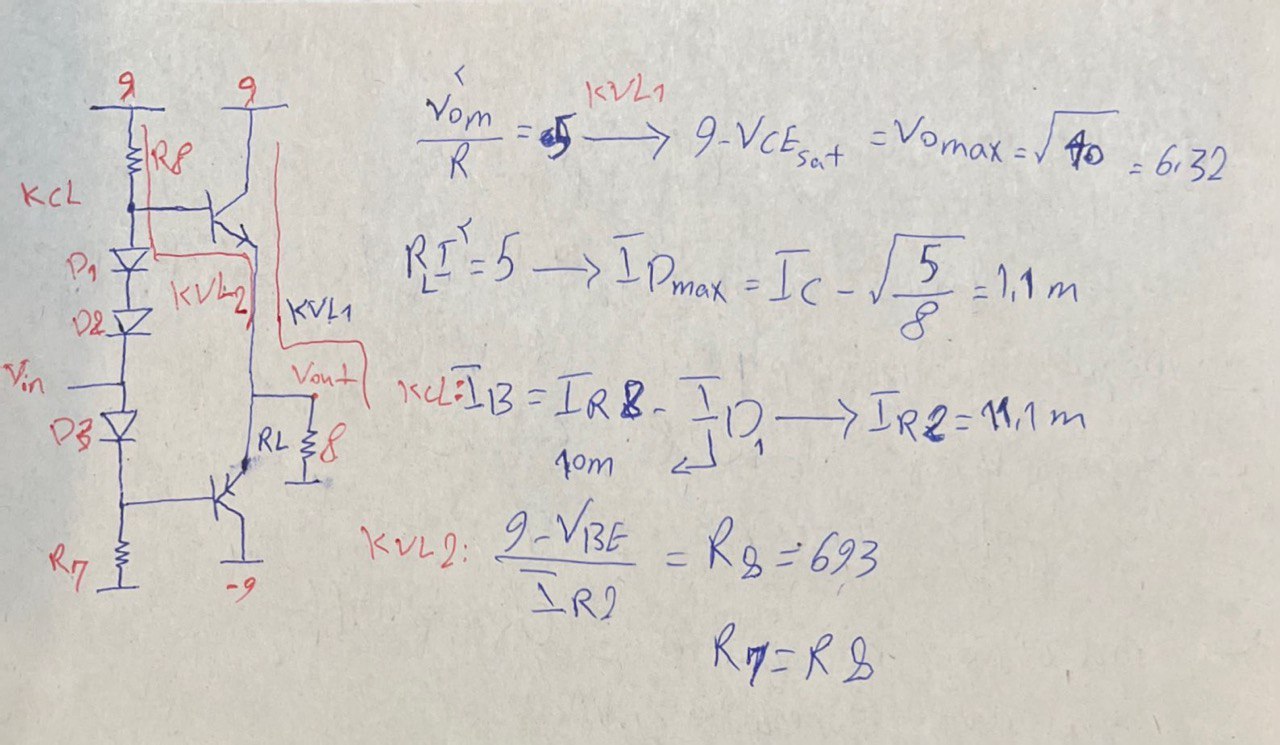 9 9
R8
KCL
D1
KVL2
D2
KVL1
Vin
Vout
D3
RL
8
R7
-9
Vom² / R = 5 → KVL1 9 - VCEsat = Vomax = √40 = 6.32
RL I² = 5 → IDmax = IC - √(5/8) = 1,1 m
KCL: IB = IR8 - ID1 → IR2 = 11,1 m
10m
KVL2: (9 - VBE) / IR2 = R8 = 693
R7 = R8